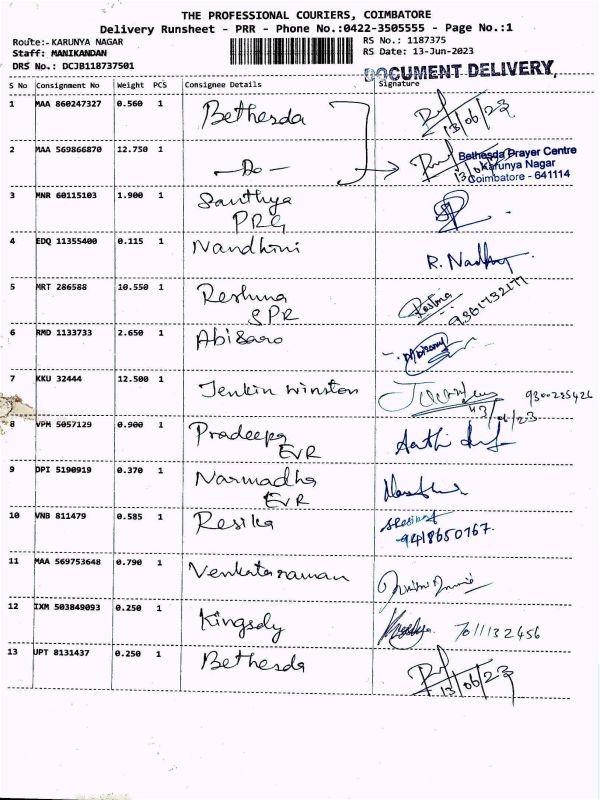 THE PROFESSIONAL COURIERS, COIMBATORE
Delivery Runsheet - PRR - Phone No.:0422-3505555 - Page No.:1
Route:- KARUNYA NAGAR RS No.: 1187375
Staff: MANIKANDAN RS Date: 13-Jun-2023
DRS No.: DCJB118737501
DOCUMENT DELIVERY,
S No Consignment No Weight PCS Consignee Details Signature
1 MAA 860247327 0.560 1 Bethesda
13/06/23
2 MAA 569866870 12.750 1 - Do -
Bethesda Prayer Centre
Karunya Nagar
Coimbatore - 641114
3 MNR 60115103 1.900 1 Santhya
PRG
4 EDQ 11355400 0.115 1 Nandhini R.
5 MRT 286588 10.550 1 Reshma Reshma
SPR
6 RMD 1133733 2.650 1 Abisaro
7 KKU 32444 12.500 1 Jenkin Winston
8 VPM 5057129 0.900 1 Pradeepa Aathi
EVR
9 DPI 5190919 0.370 1 Narmadha
EVR
10 VNB 811479 0.585 1 Resika
9418650767.
11 MAA 569753648 0.790 1 Venkataraman
12 IXM 503849093 0.250 1 Kingsdy 7011132456
13 UPT 8131437 0.250 1 Bethesda
13/06/23